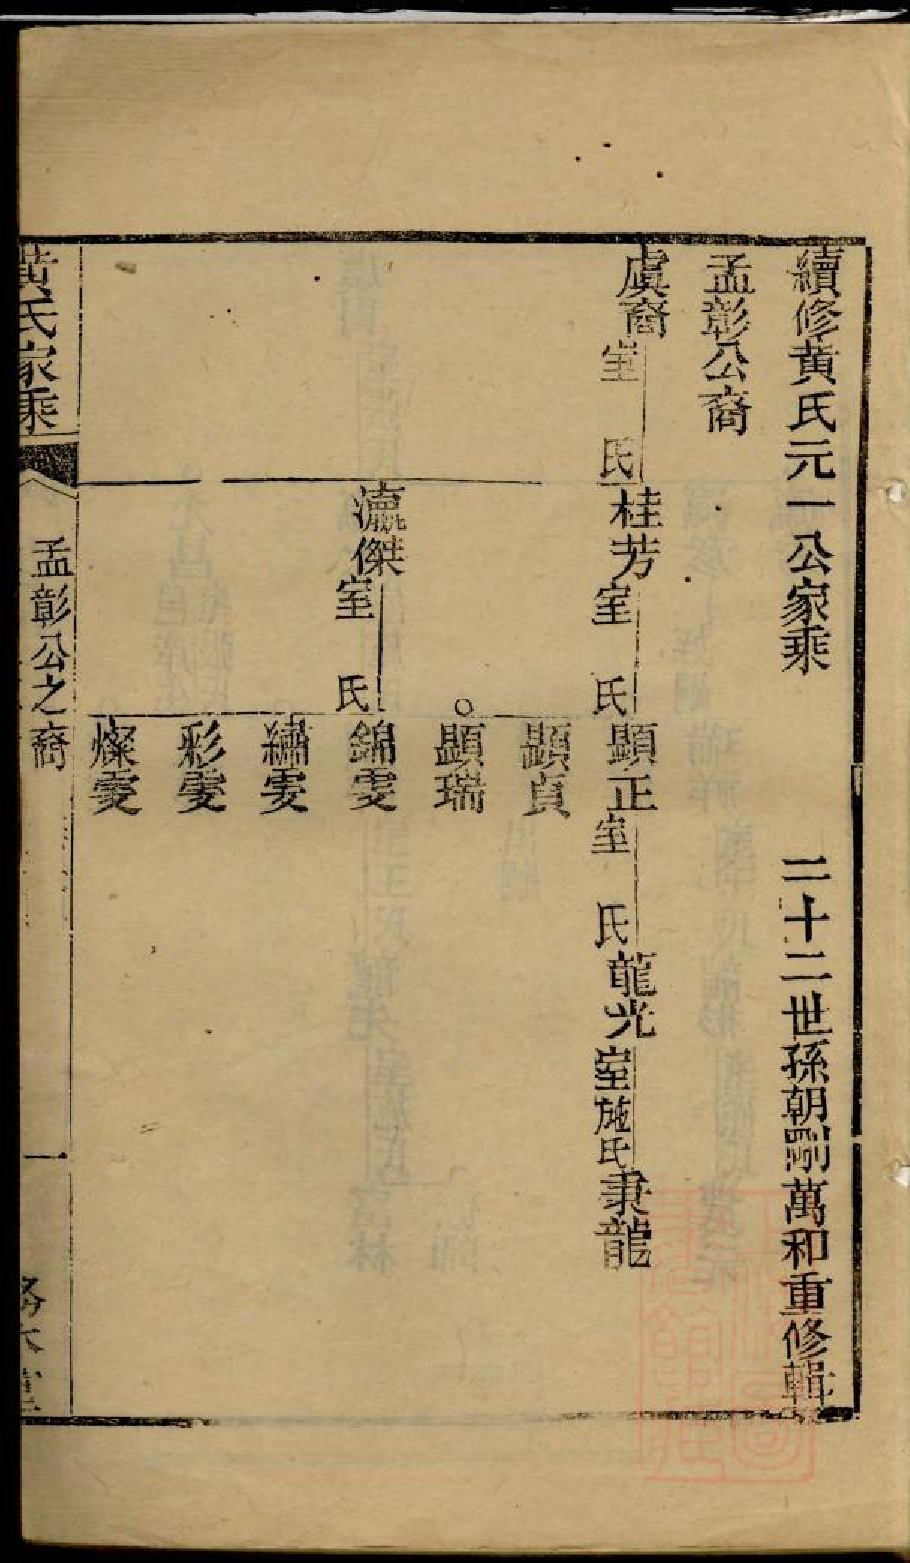 續修黃氏元一公家乘 二十二世孫朝剛萬和重修輯
孟彰公裔
虞裔 室 氏 桂芳 室 氏 顯正 室 氏 龍光 室施氏 秉龍
顯貞
顯瑞
瀛傑 室 氏 錦雯
繡雯
彩雯
燦雯
黃氏家乘 孟彰公之裔 一